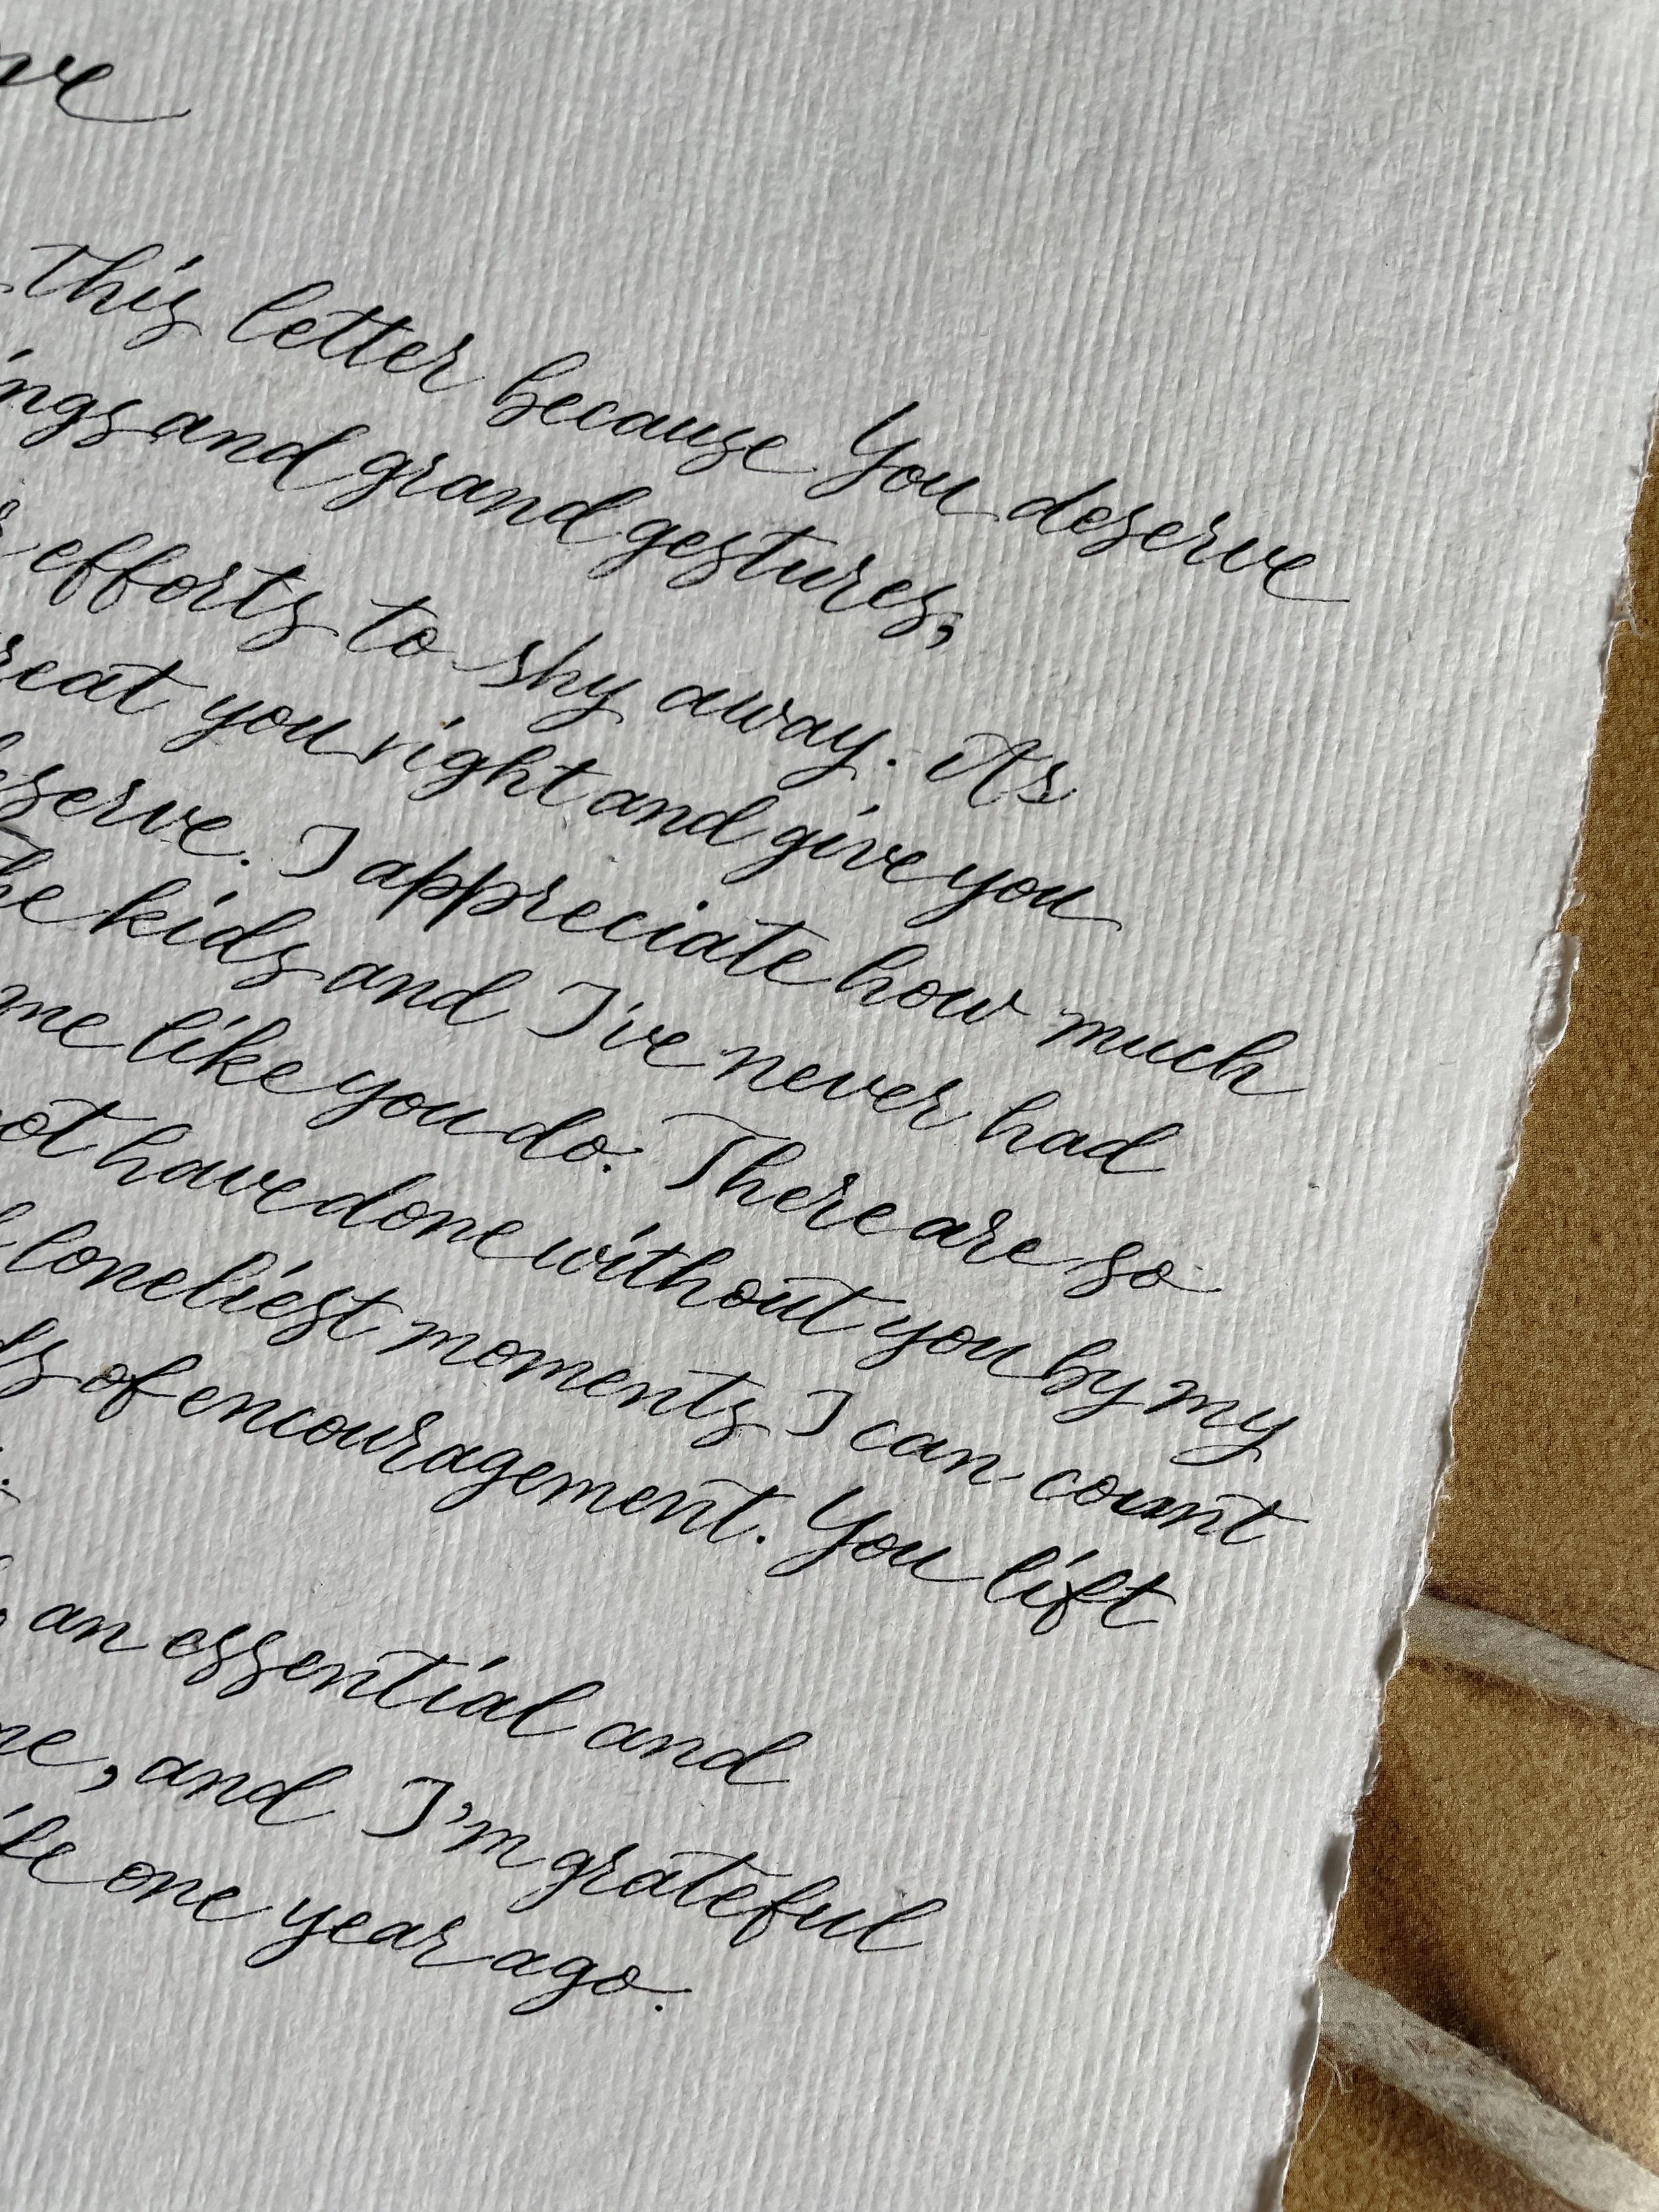 this letter because you deserve
and grand gestures,
efforts to shy away. As
you right and give you
I appreciate how much
kids and I've never had
me like you do. There are so
have done without you by my
loneliest moments I can count
of encouragement. You lift
an essential and
, and I'm grateful
one year ago.